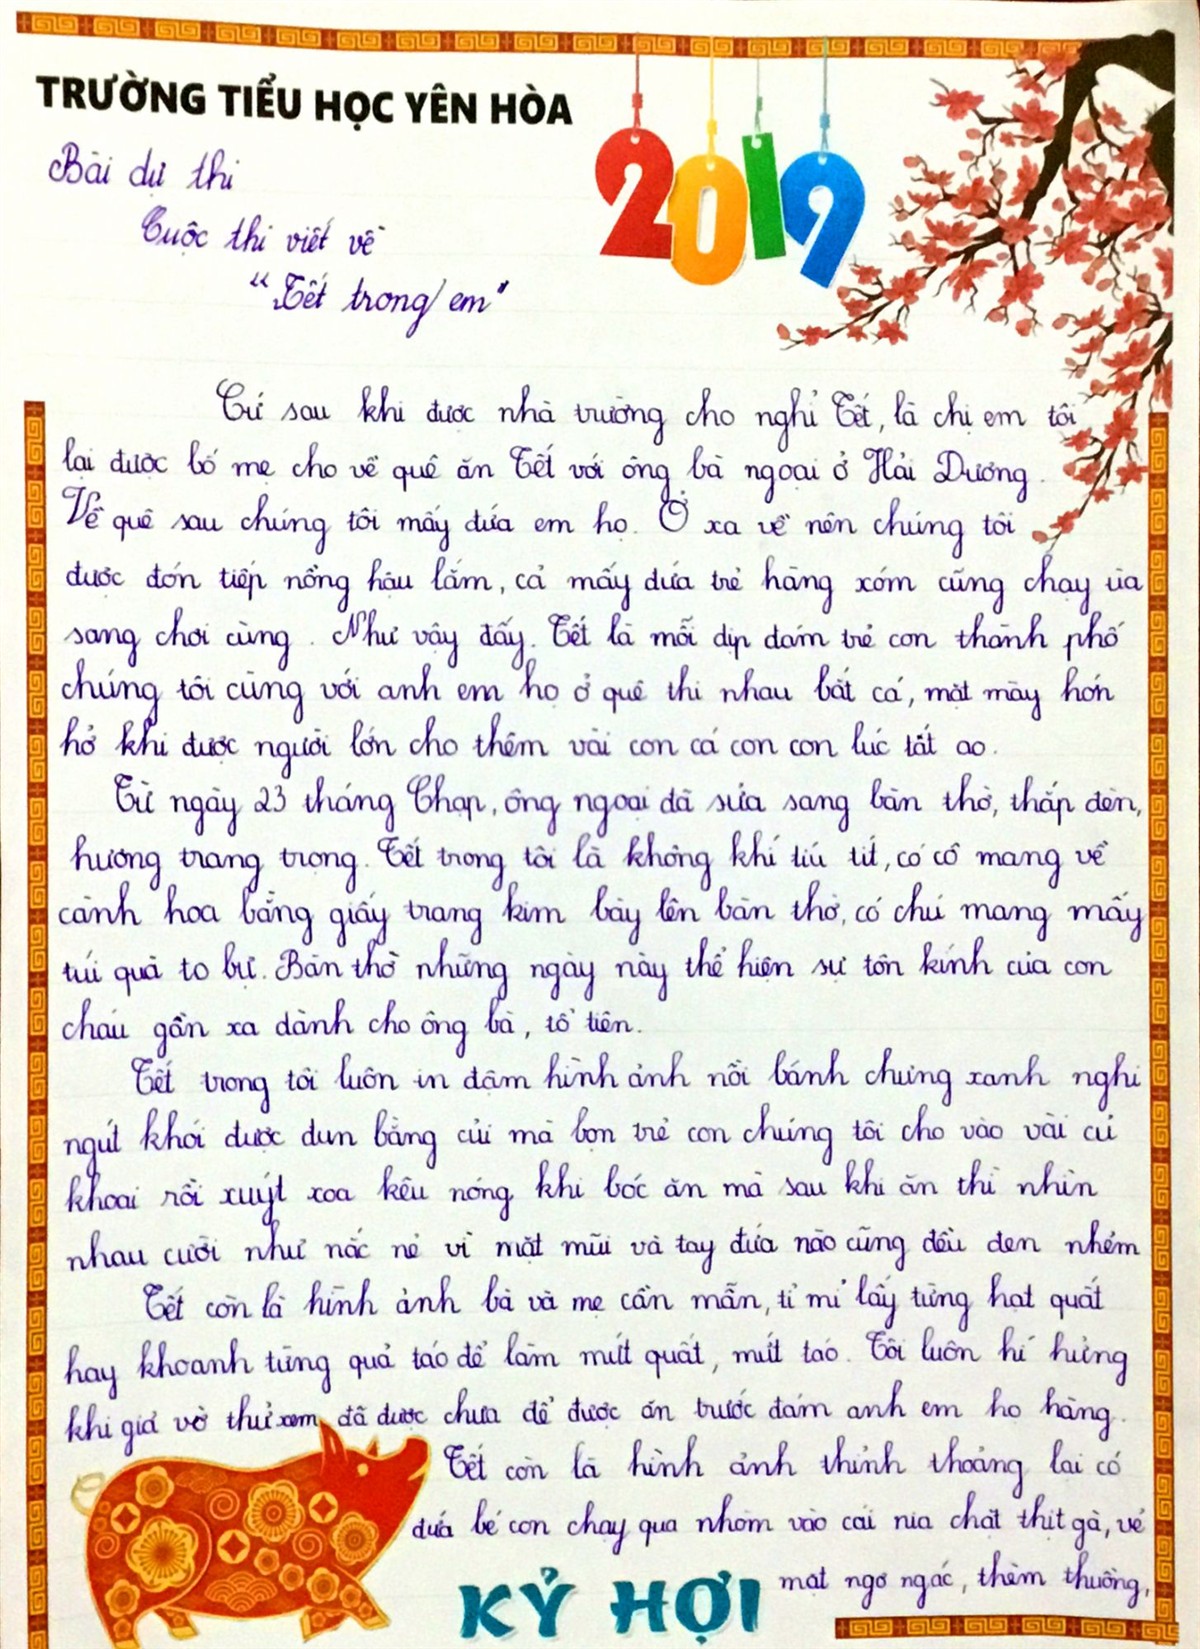 TRƯỜNG TIỂU HỌC YÊN HÒA
2019
Bài dự thi
Cuộc thi viết về
"Tết trong em"
Cứ sau khi được nhà trường cho nghỉ Tết, là chị em tôi
lại được bố mẹ cho về quê ăn Tết với ông bà ngoại ở Hải Dương.
Về quê sau chúng tôi mấy đứa em họ. Ở xa về nên chúng tôi
được đón tiếp nồng hậu lắm, cả mấy đứa trẻ hàng xóm cũng chạy ùa
sang chơi cùng. Như vậy đấy. Tết là mỗi dịp đám trẻ con thành phố
chúng tôi cùng với anh em họ ở quê thi nhau bắt cá, mặt mày hớn
hở khi được người lớn cho thêm vài con cá con con lúc tát ao.
Từ ngày 23 tháng Chạp, ông ngoại đã sửa sang bàn thờ, thắp đèn,
hương trang trọng. Tết trong tôi là không khí tíu tít, có cô mang về
cành hoa bằng giấy trang kim bày lên bàn thờ, có chú mang mấy
túi quà to bự. Bàn thờ những ngày này thể hiện sự tôn kính của con
cháu gần xa dành cho ông bà, tổ tiên.
Tết trong tôi luôn in đậm hình ảnh nồi bánh chưng xanh nghi
ngút khói được đun bằng củi mà bọn trẻ con chúng tôi cho vào vài củ
khoai rồi xuýt xoa kêu nóng khi bóc ăn mà sau khi ăn thì nhìn
nhau cười như nắc nẻ vì mặt mũi và tay đứa nào cũng đều đen nhẻm
Tết còn là hình ảnh bà và mẹ cần mẫn, tỉ mỉ lấy từng hạt quất
hay khoanh từng quả táo để làm mứt quất, mứt táo. Tôi luôn hí hửng
khi giả vờ thử xem đã được chưa để được ăn trước đám anh em họ hàng.
Tết còn là hình ảnh thỉnh thoảng lại có
đứa bé con chạy qua nhòm vào cái nia chặt thịt gà, vẻ
mặt ngơ ngác, thèm thuồng,
KỶ HỢI